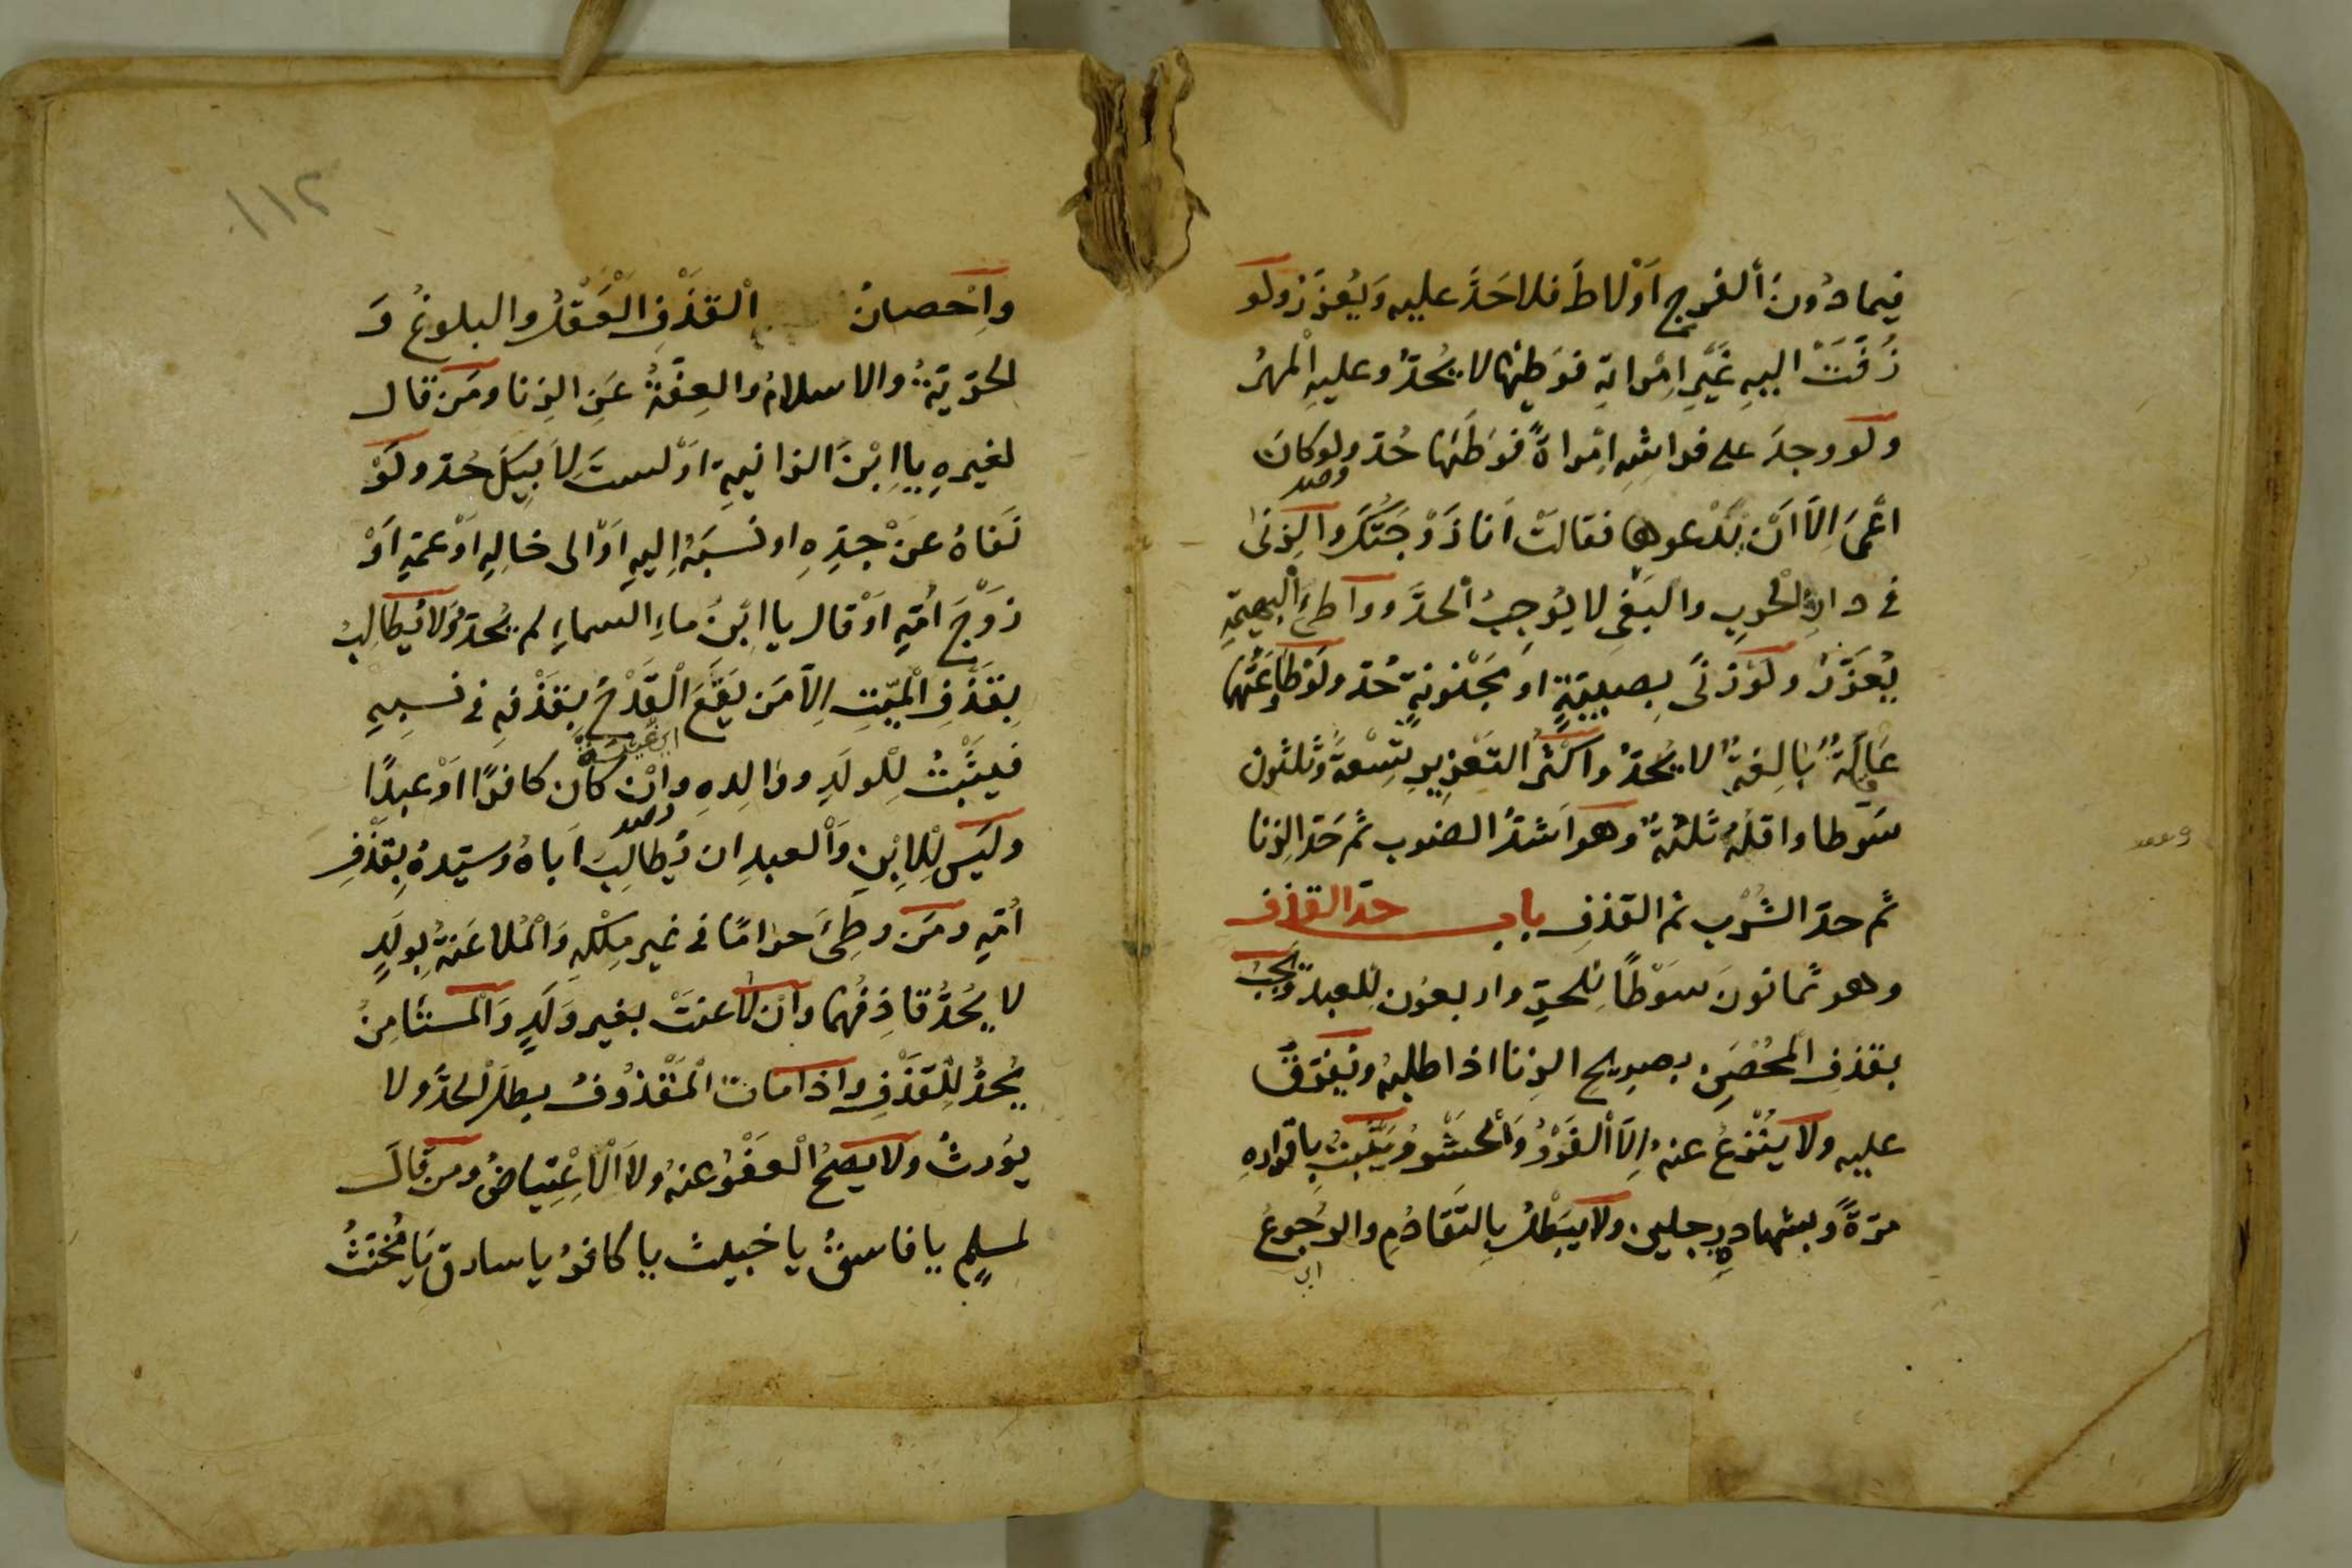 فيما دُونَ الفرج اَوْ لاطَ فلا حَدَّ عليه وَيُعزّر ولو
زُفَّتْ اليهِ غَيْرِ اِمْراتِهِ فوَطِئها لا يُحَدُّ وعليهِ الْمَهْرُ
ولو وجدَ على فراشِهِ اِمْراةً فوَطَئها حُدّ ولو كانَ
اعْمىَ اِلاّ اَنْ يَدْعوها فقالتْ اَنا زَوْجَتُكَ والزِنىٰ
فى دارِ الْحربِ والبَغىِ لا يُوجِبُ الْحدَّ وواطئُ الْبهيمةِ
يُعَزَّرُ ولوْ زنىَ بِصبِيّةٍ او مَجْنونةٍ حُدّ ولوْ طاوَعَتْهما
عَاقِلةٌ بٰالِغةٌ لا يُحَدُّ واكْثرُ التَعْزيرِ تِسْعةٌ وَثلٰثون
سَوطا واقلهُ ثلٰثةٌ وهو اَشدُّ الضرب ثم حَدّ الزِنا
ثم حدّ الشُرْب ثم القذفِ باب حدّ القذف
وهو ثمانونَ سَوْطاً لِلحرِّ واربعون لِلعبد ويَجبُ
بقذفِ الْمحُصَنِ بصريحِ الزنا اذا طلبهُ ويُفَرَّقُ
عليه ولا يُنْزعُ عنهُ اِلاّ الْفَرْوُ وَالْحَشْوُ ويَثْبتُ بِاقرارِهِ
مرّةً وبشهادةِ رجلين ولا يَبْطلُ بِالتَقَادُمِ والرُجُوعُ
واِحْصانُ الْقذْفِ الْعَقْلُ والبلوغُ وَ
الحرّيّةُ والاسلامُ والعِفّةُ عَنِ الزِنا ومَن قال
لغيرهِ يا اِبْنَ الزانيةِ اوْ لستَ لِاَبِيكَ حُدّ ولَوْ
نَفاهُ عنْ جدِّهِ او نسَبَهُ اِليهِ اَوْ الى خالِهِ اَوْ عمّهِ اَوْ
زوْجَ اُمّهِ اَوْ قال يا ابْنَ ماءِ السماءِ لم يُحَدّ ولا يُطالِبُ
بِقَذْفِ الْميّتِ اِلاّ مَن يَقعَ الْقَدْحُ بِقذْفهِ فى نسبِهِ
فيثْبتُ لِلْولَدِ ووالِدهِ واِنْ كان كافرًا اوْ عبدًا
وليَس لِلْاِبْنِ وَالْعبدِ ان يُطالِبَ اَباهُ وسيّدهُ بِقذْفِ
اُمّهِ ومَن وطِئَ حرامًا فى غير مِلْكهِ وَالْمُلاعَنةُ بِولَدٍ
لا يُحَدُّ قاذِفُهما واِن لاعنتْ بغير ولَدٍ وَالْمستأمِنُ
يُحَدُّ لِلْقذْفِ واذا ماتَ الْمَقْذُوفُ بطلَ الْحدُّ ولا
يوُرثُ ولا يَصحُّ الْعفْوُ عنهُ ولا الْاِعْتِياضُ ومن قالَ
لمسلمٍ يا فاسقُ يا خبيث يا كافرُ يا سارق يا مُخنّثُ
١١٢